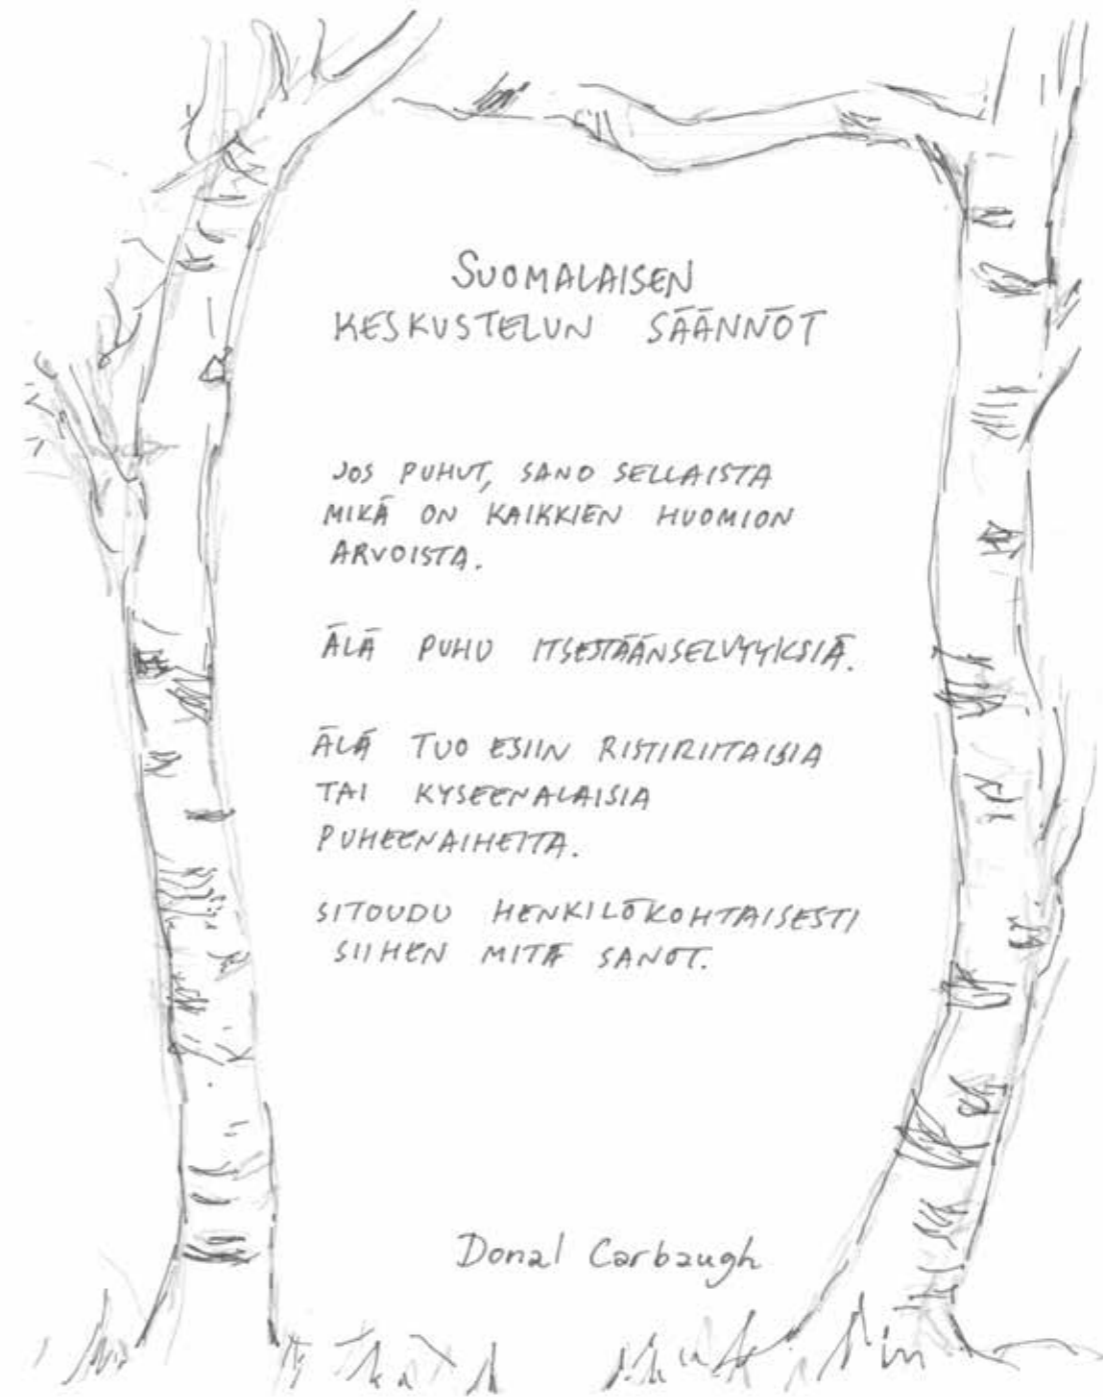 SUOMALAISEN
KESKUSTELUN SÄÄNNÖT
JOS PUHUT, SANO SELLAISTA
MIKÄ ON KAIKKIEN HUOMION
ARVOISTA.
ÄLÄ PUHU ITSESTÄÄNSELVYYKSIÄ.
ÄLÄ TUO ESIIN RISTIRIITAISIA
TAI KYSEENALAISIA
PUHEENAIHEITA.
SITOUDU HENKILÖKOHTAISESTI
SIIHEN MITÄ SANOT.
Donal Carbaugh